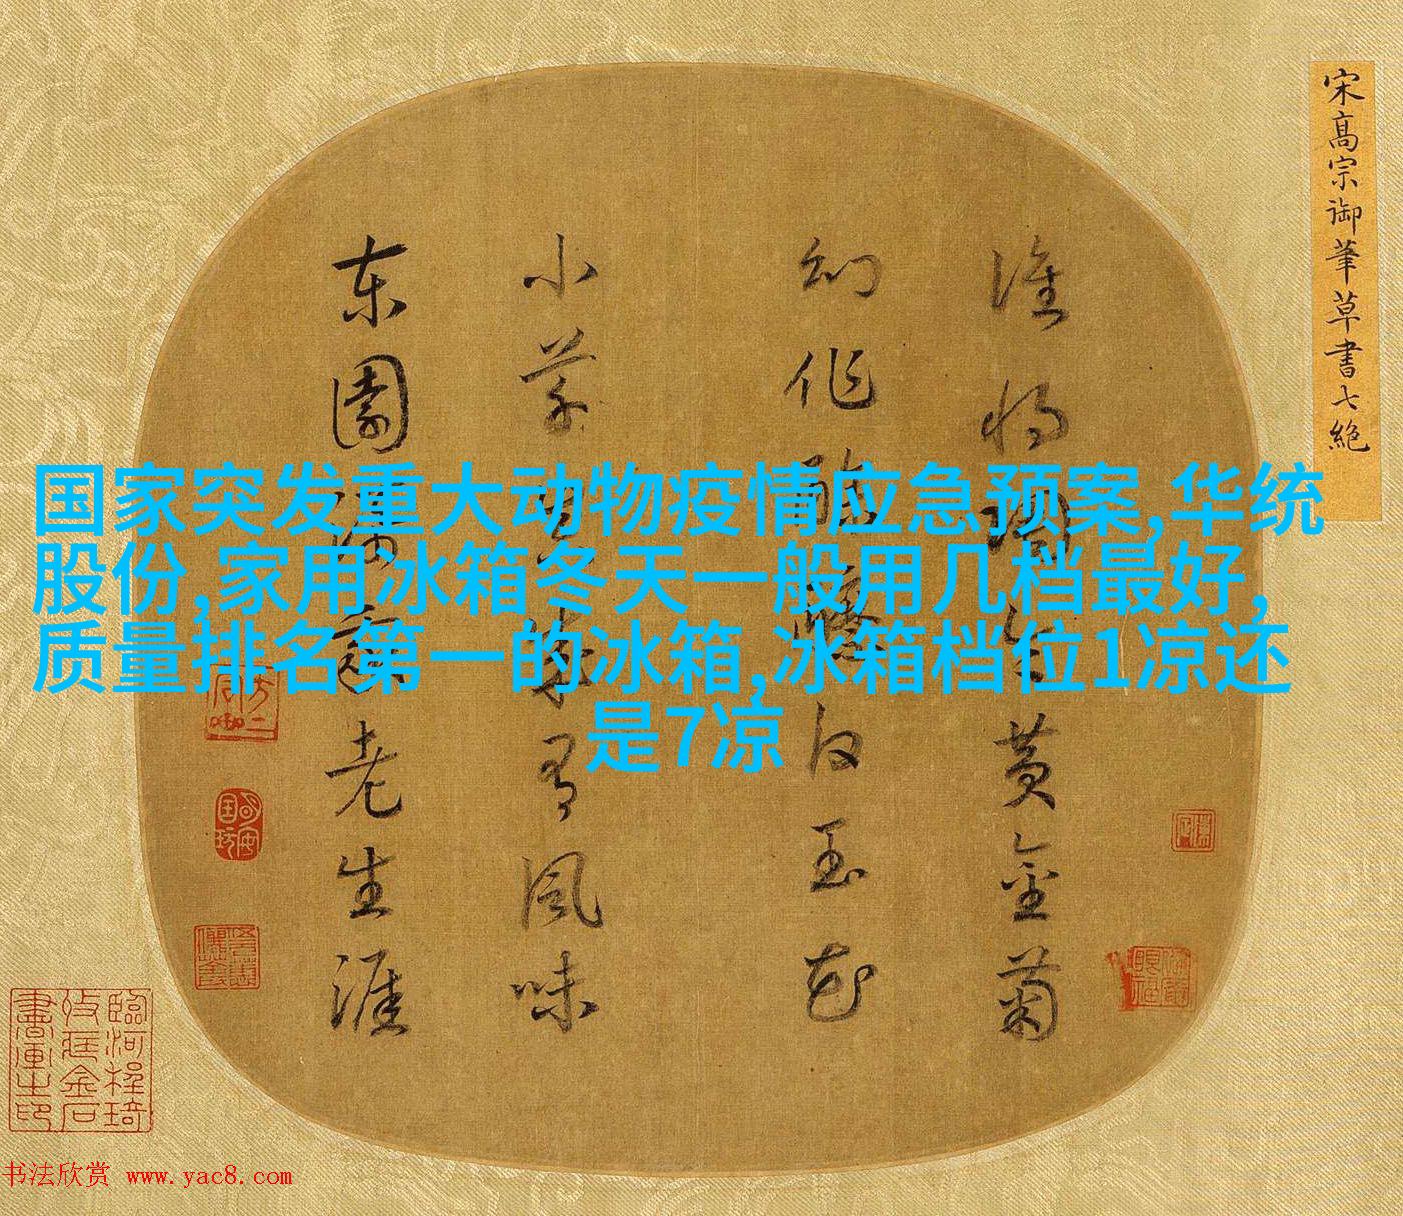 宋髙宗御筆草書七絶
誰將陶令黄金菊
幻作酴醿白玉花
小草真成有風味
东園添我老生涯
国家突发重大动物疫情应急预案,华统
股份,家用冰箱冬天一般用几档最好,
质量排名第一的冰箱,冰箱档位1凉还
是7凉
书法欣赏 www.yac8.com